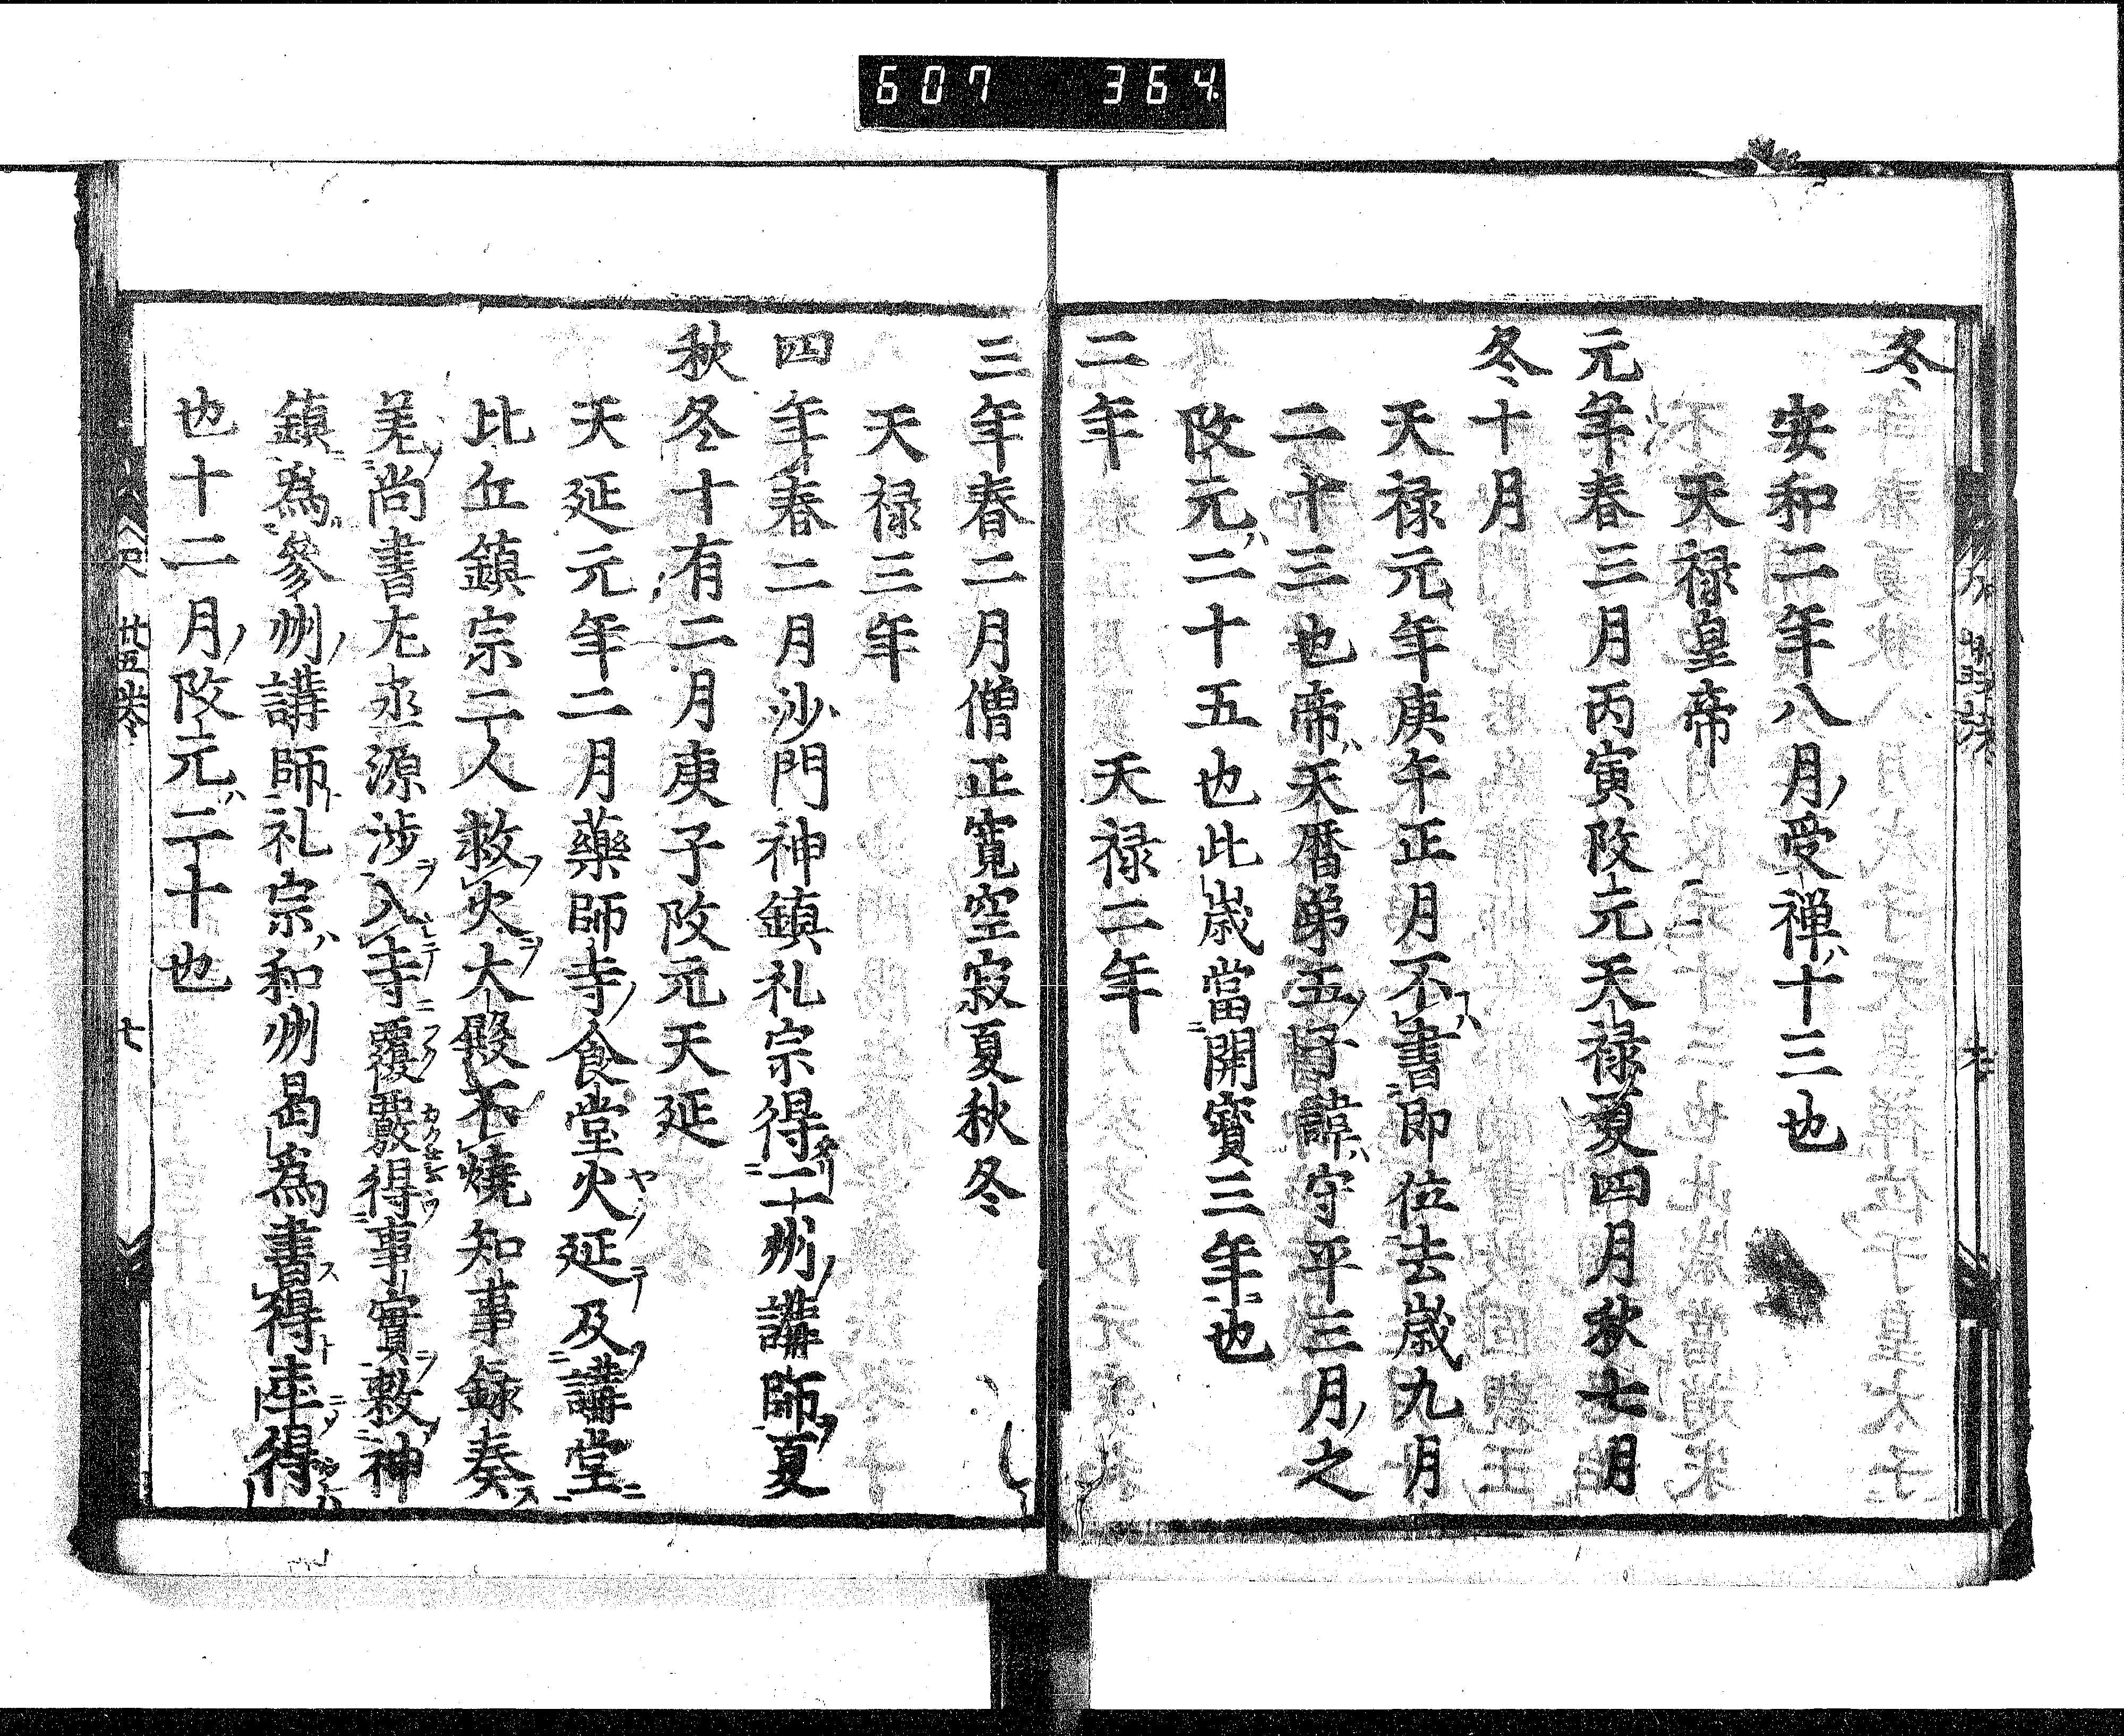 607 364
冬
安和二年八月受禅十三也
天禄皇帝
元年春三月丙寅改元天禄夏四月秋七月
冬十月
天禄元年庚午正月不書即位去歳九月
二十三也帝天暦第五子諱守平三月之
改元二十五也此歳當開寳三年也
二年　　　天禄二年
三年春二月僧正寛空寂夏秋冬
天禄三年
四年春二月沙門神鎮礼宗得二十州講師夏
秋冬十有二月庚子改元天延
天延元年二月藥師寺食堂火延及講堂
比丘鎮宗二人救火大殿不燒知事録奏
羌尚書左丞源渉入寺覆覈得事實敕神
鎮爲參州講師礼宗和州曷爲書得陣得
也十二月改元二十也
廿五巻
七